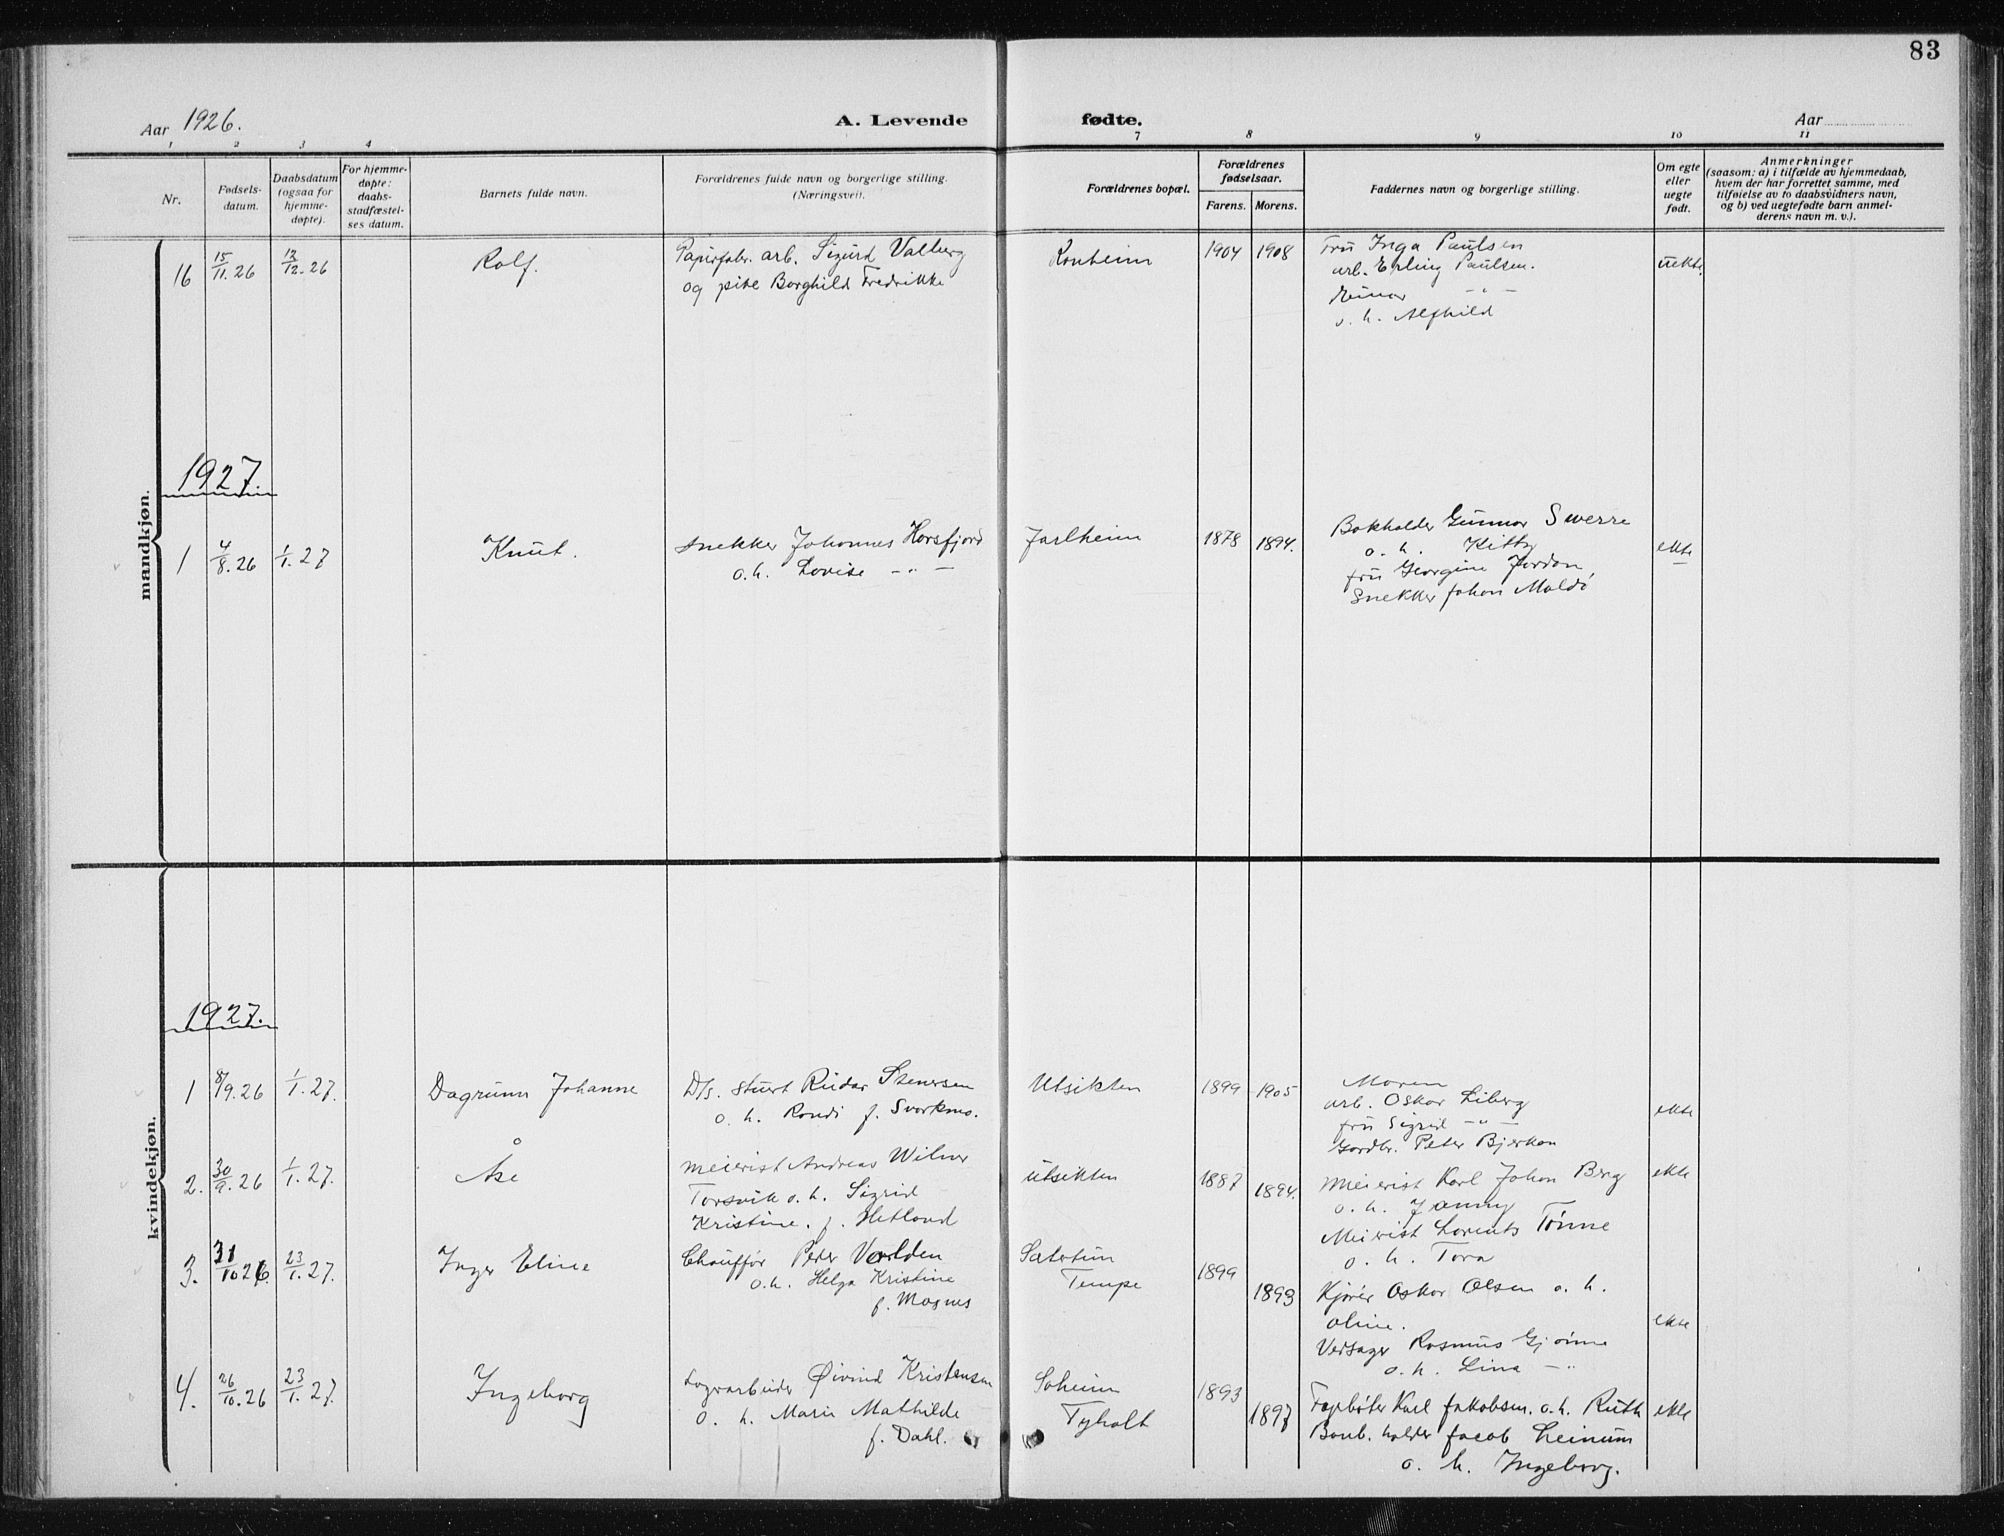 83
Aar 1926.
A. Levende fødte.
Aar
1 2 3 4 7 8 9 10 11
Nr.
Fødsels-
datum.
Daabsdatum
(ogsaa for
hjemme-
døpte).
For hjemme-
døpte:
daabs-
stadfæstel-
ses datum.
Barnets fulde navn.
Forældrenes fulde navn og borgerlige stilling.
(Næringsvei).
Forældrenes bopæl.
Forældrenes
fødselsaar.
Farens. Morens.
Faddernes navn og borgerlige stilling.
Om egte
eller
uegte
født.
Anmerkninger
(saasom: a) i tilfælde av hjemmedaab,
hvem der har forrettet samme, med
tilføielse av to daabsvidners navn,
og b) ved uegtefødte barn anmel-
derens navn m. v.).
mandkjøn.
16 15/11.26 12/12.26 Rolf. Papirfabr. arb. Sigurd Valberg 1904 1908 Fru Inga Paulsen uekte.
og pike Borghild Fredrikke arb. Erling Paulsen.
Einar -"-
o. h. Alfhild
1927.
1 4/8.26 1/1.27 Knut. Snekker Johannes Horsfjord Jarlheim 1878 1894. Bokholder Gunnar Swerre ekte
o.h. Lovise -"- o. h. Kitty
fru Georgine Jordan,
Snekker Johan Moldö
kvindekjøn.
1927.
1 8/9.26 1/1.27. Dagrunn Johanne D/s. stuert Reidar Stenersen Utsikten 1899 1905 Moren ekte
o. h. Rondi f. Svorkmo. arb. Oskar Liberg
fru Sigrid -"-
Gardbr. Peter Bjerkan
2. 30/9.26 1/1.27. Åse Meierist Andreas Wilner utsikten 1887 1894. Meierist Karl Johan Berg ekte
Torsvik o. h. Sigrid o. h. Jenny
Kristine. f. Hetland Meierist Lorents Tønne
o. h. Tora
3. 31/10 26. 23/1.27. Inger Eline Chauffør Peder Vorlden Sætertun 1899 1893 Kjører Oskar Olsen o. h. ekte
o.h. Helga Kristine Tempe Oline.
f. Magnus Rasmus Gjønne
o. h. Lina -"-
4. 26/10.26 23/1.27. Ingeborg Lagerarbeider Øivind Kristensen Solheim 1893 1897 Karl Jakobsen. o. h. Ruth ekte
o. h. Marie Mathilde Tyholt holder Jacob Leinum
f. Dahl. o. h. Ingeborg.